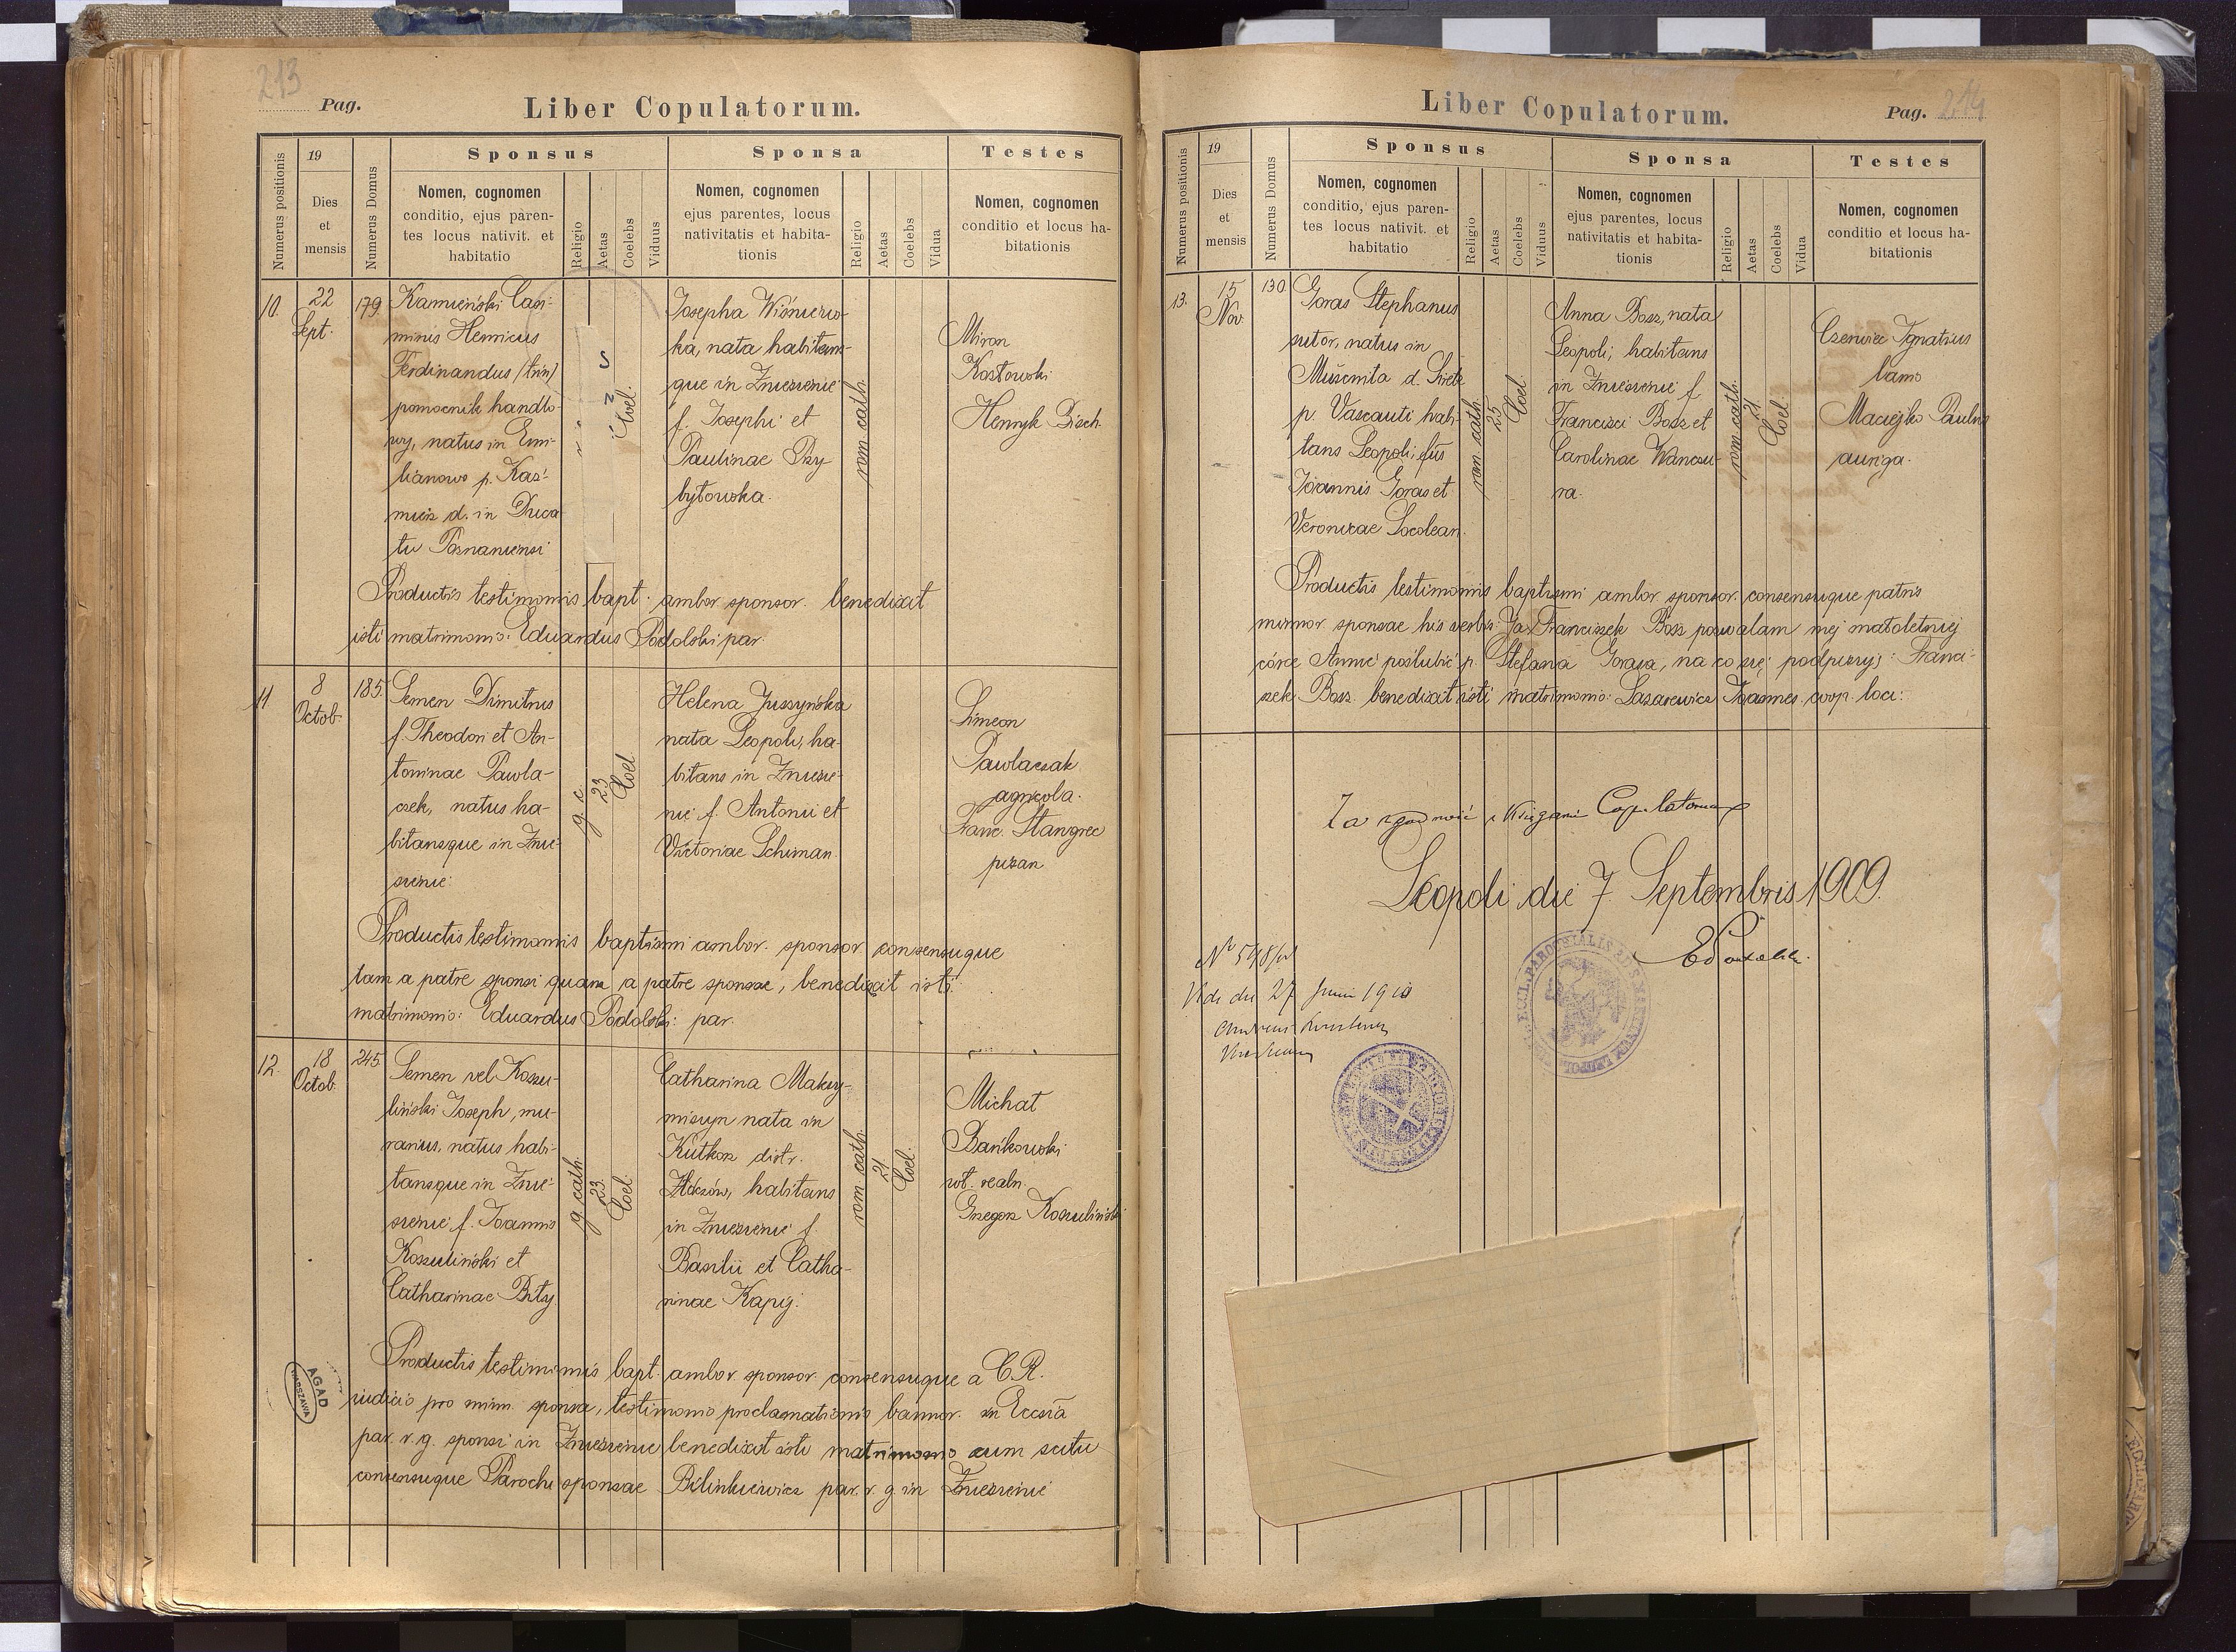 213
Pag.
Liber Copulatorum.
Numerus positionis
19
Dies
et
mensis
Numerus Domus
Sponsus
Nomen, cognomen
conditio, ejus paren-
tes locus nativit. et
habitatio
Religio
Aetas
Coelebs
Viduus
Sponsa
Nomen, cognomen
ejus parentes, locus
nativitatis et habita-
tionis
Religio
Aetas
Coelebs
Vidua
Testes
Nomen, cognomen
conditio et locus ha-
bitationis
10.
22
Sept.
179
Kamieński Casi-
miris Henricus
Ferdinandus /trin/
pomocnik handlo-
wy, natus in Emi-
lianowo p. Kaź-
mierz d. in Duca
tu Posnaniensi
Coel.
Josepha Wiśniews-
ka, nata habitans-
que in Zniesienie
f. Josephi et
Paulinae Przy
bytowska.
rom cath.
Miron
Kostowski
Henryk Disch.
Productis testimoniis bapt. ambor sponsor. benedixit
isti matrimonio: Eduardus Podolski par.
11
8
Octob.
185.
Semen Dimitrius
f. Theodori et An-
toninae Pawla-
czek, natus ha-
bitansque in Znie-
sienie
g. c.
23
Coel
Helena Juszyńska
nata Leopoli, ha-
bitans in Zniesie-
nie f. Antonii et
Victoriae Schiman
Simeon
Pawlaczak
agricola.
Franc. Stangrec
pizan
Productis testimoniis baptismi ambor. sponsor consensuque
tam a patre sponsi quam a patre sponsae, benedixit isti
matrimonio: Eduardus Podolski par.
12.
18
Octob.
245
Semen vel Koszu-
liński Joseph, mu-
rarius, natus habi-
tansque in Znie-
sienie f. Joannis
Koszuliński et
Catharinae Bity
g. cath.
23
Coel
Catharina Maksy-
miszyn nata in
Kutkorz distr.
Złoczów, habitans
in Zniesienie f.
Basilii et Catha-
rinae Kapij.
rom cath.
21.
Coel.
Michał
Bańkowski
wł. realn.
Grzegorz Koszuliński
Productis testimoniis bapt. ambor sponsor. consensuque a C. R.
judicio pro minor. sponsa, testimonio proclamationis bannor. in Eccsia
par. r. g. sponsi in Zniesienie benedixit isti matrimonio cum scitu
consensuque Parochi sponsae Bilinkiewicz par. r. g. in Zniesienie
AGAD
WARSZAWA
Liber Copulatorum.
Pag. 214
Numerus positionis
19
Dies
et
mensis
Numerus Domus
Sponsus
Nomen, cognomen
conditio, ejus paren-
tes locus nativit. et
habitatio
Religio
Aetas
Coelebs
Viduus
Sponsa
Nomen, cognomen
ejus parentes, locus
nativitatis et habita-
tionis
Religio
Aetas
Coelebs
Vidua
Testes
Nomen, cognomen
conditio et locus ha-
bitationis
13.
15
Nov.
130
Goras Stephanus
sutor, natus in
p. Vascauti habi-
tans Leopoli, fius
Joannis Goras et
Veronicae Socolean.
rom cath.
25
Coel.
Anna Bosz, nata
Leopoli, habitans
in Zniesienie f.
Francisci Bosz et
Carolinae Wanczu-
ra.
rom cath.
21
Coel.
Czerwiec Ignatius
Maciejko Paulus
auriga.
Productis testimoniis baptismi ambor. sponsor. consensuque patris
minor sponsae his verbis: Ja Franciszek Bosz pozwalam mej małoletniej
córce Annie poślubić p. Stefana Gorasa, na co się podpisuję: Franci-
szek Bosz. benedixit isti matrimonio: Lazarewicz Joannes coop. loci:
Za zgodność z Księgami Copulatorum
Leopoli die 7. Septembris 1909.
EPodolski.
N 548/
Vidi die 27 Junii 1910